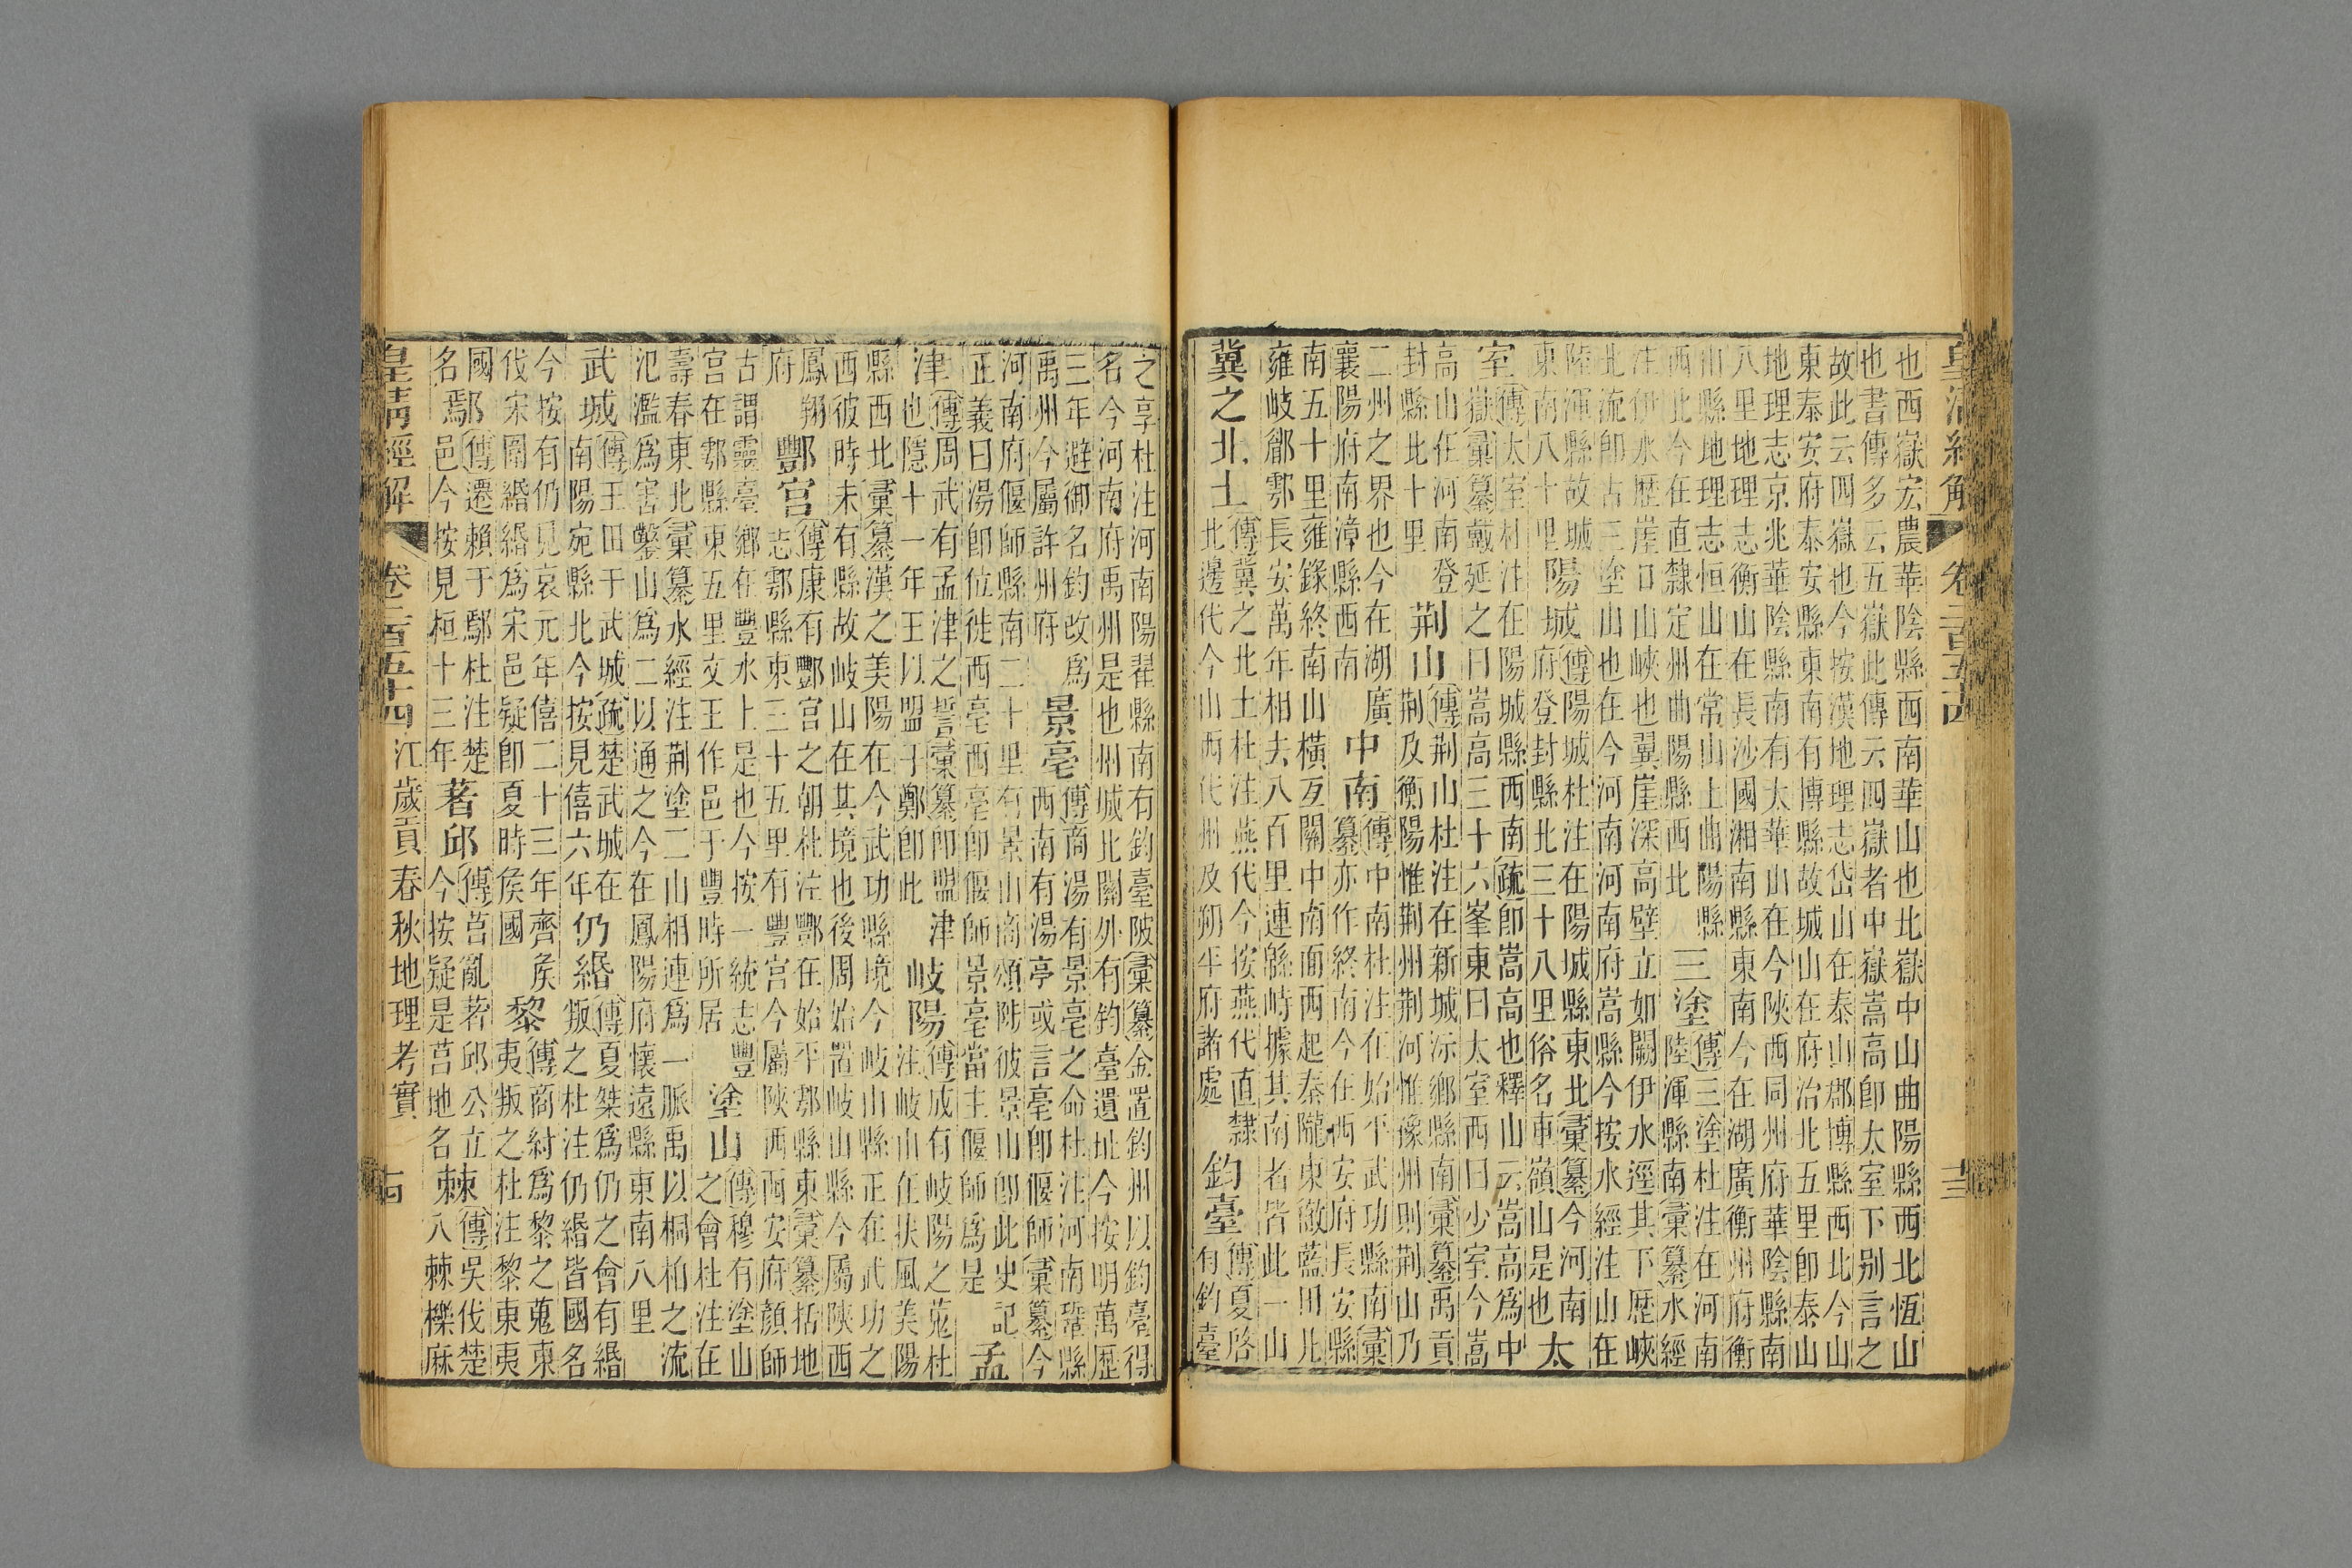 皇清經解 卷二百五十四 十三
也西嶽宏農華陰縣西南華山也北嶽中山曲陽縣西北恆山
也書傳多云五嶽此傳云四嶽者中嶽嵩高卽太室下別言之
故此云四嶽也今按漢地理志岱山在泰山郡博縣西北今山
東泰安府泰安縣東南有博縣故城山在府治北五里卽泰山
地理志京兆華陰縣南有太華山在今陝西同州府華陰縣南
八里地理志衡山在長沙國湘南縣東南今在湖廣衡州府衡
山縣地理志恒山在常山上曲陽縣
西北今在直隸定州曲陽縣西北
三塗
傳三塗杜注在河南
陸渾縣南彙纂水經
注伊水歷崖口山峽也翼崖深高壁立如闕伊水逕其下歷峽
北流卽古三塗山也在今河南河南府嵩縣今按水經注山在
陸渾縣故城
東南八十里
陽城
傳陽城杜注在陽城縣東北彙纂今河南
府登封縣北三十八里俗名車嶺山是也
太
室
傳太室杜注在陽城縣西南疏卽嵩高也釋山云嵩高爲中
嶽彙纂戴延之曰嵩高三十六峯東曰太室西曰少室今嵩
高山在河南登
封縣北十里
荆山
傳荆山杜注在新城沶鄉縣南彙纂禹貢
荆及衡陽惟荆州荆河惟豫州則荆山乃
二州之界也今在湖廣
襄陽府南漳縣西南
中南
傳中南杜注在始平武功縣南彙
纂亦作終南今在西安府長安縣
南五十里雍錄終南山橫亙關中南面西起秦隴東徹藍田凡
雍岐郿鄠長安萬年相去八百里連緜峙據其南者皆此一山
冀之北土
傳冀之北土杜注燕代今按燕代直隸
北邊代今山西代州及朔平府諸處
鈞臺
傳夏啓
有鈞臺
之享杜注河南陽翟縣南有鈞臺陂彙纂金置鈞州以鈞臺得
名今河南府禹州是也州城北關外有鈞臺遺址今按明萬歷
三年避御名鈞改爲
禹州今屬許州府
景亳
傳商湯有景亳之命杜注河南鞏縣
西南有湯亭或言亳卽偃師彙纂今
河南府偃師縣南二十里有景山商頌陟彼景山卽此史記
正義曰湯卽位徙西亳西亳卽偃師景亳當主偃師爲是
孟
津
傳周武有孟津之誓彙纂卽盟津
也隱十一年王以盟于鄭卽此
岐陽
傳成有岐陽之蒐杜
注岐山在扶風美陽
縣西北彙纂漢之美陽在今武功縣境今岐山縣正在武功之
西彼時未有縣故岐山在其境也後周始置岐山縣今屬陝西
鳳翔
府
酆宮
傳康有酆宮之朝杜注酆在始平鄠縣東彙纂括地
志鄠縣東三十五里有豐宮今屬陝西西安府顏師
古謂靈臺鄉在豐水上是也今按一統志豐
宮在鄠縣東五里文王作邑于豐時所居
塗山
傳穆有塗山
之會杜注在
壽春東北彙纂水經注荆塗二山相連爲一脈禹以桐柏之流
氾濫爲害鑿山爲二以通之今在鳳陽府懷遠縣東南八里
武城
傳王田于武城疏楚武城在
南陽宛縣北今按見僖六年
仍緡
傳夏桀爲仍之會有緡
叛之杜注仍緡皆國名
今按有仍見哀元年僖二十三年齊侯
伐宋圍緡緡爲宋邑疑卽夏時侯國
黎
傳商紂爲黎之蒐東
夷叛之杜注黎東夷
國
名
鄢
傳遷賴于鄢杜注楚
邑今按見桓十三年
著邱
傳莒亂著邱公立
今按疑是莒地名
棘
傳吳伐楚
入棘櫟麻
皇清經解 卷二百五十四 江歲貢春秋地理考實 十四